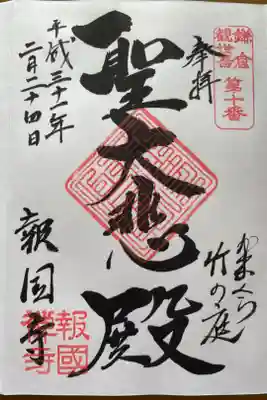 鎌倉
観世音
第十番
奉拝
かまくら
竹の庭
聖大悲殿
平成三十一年
二月二十四日
報国寺
報國
禅寺